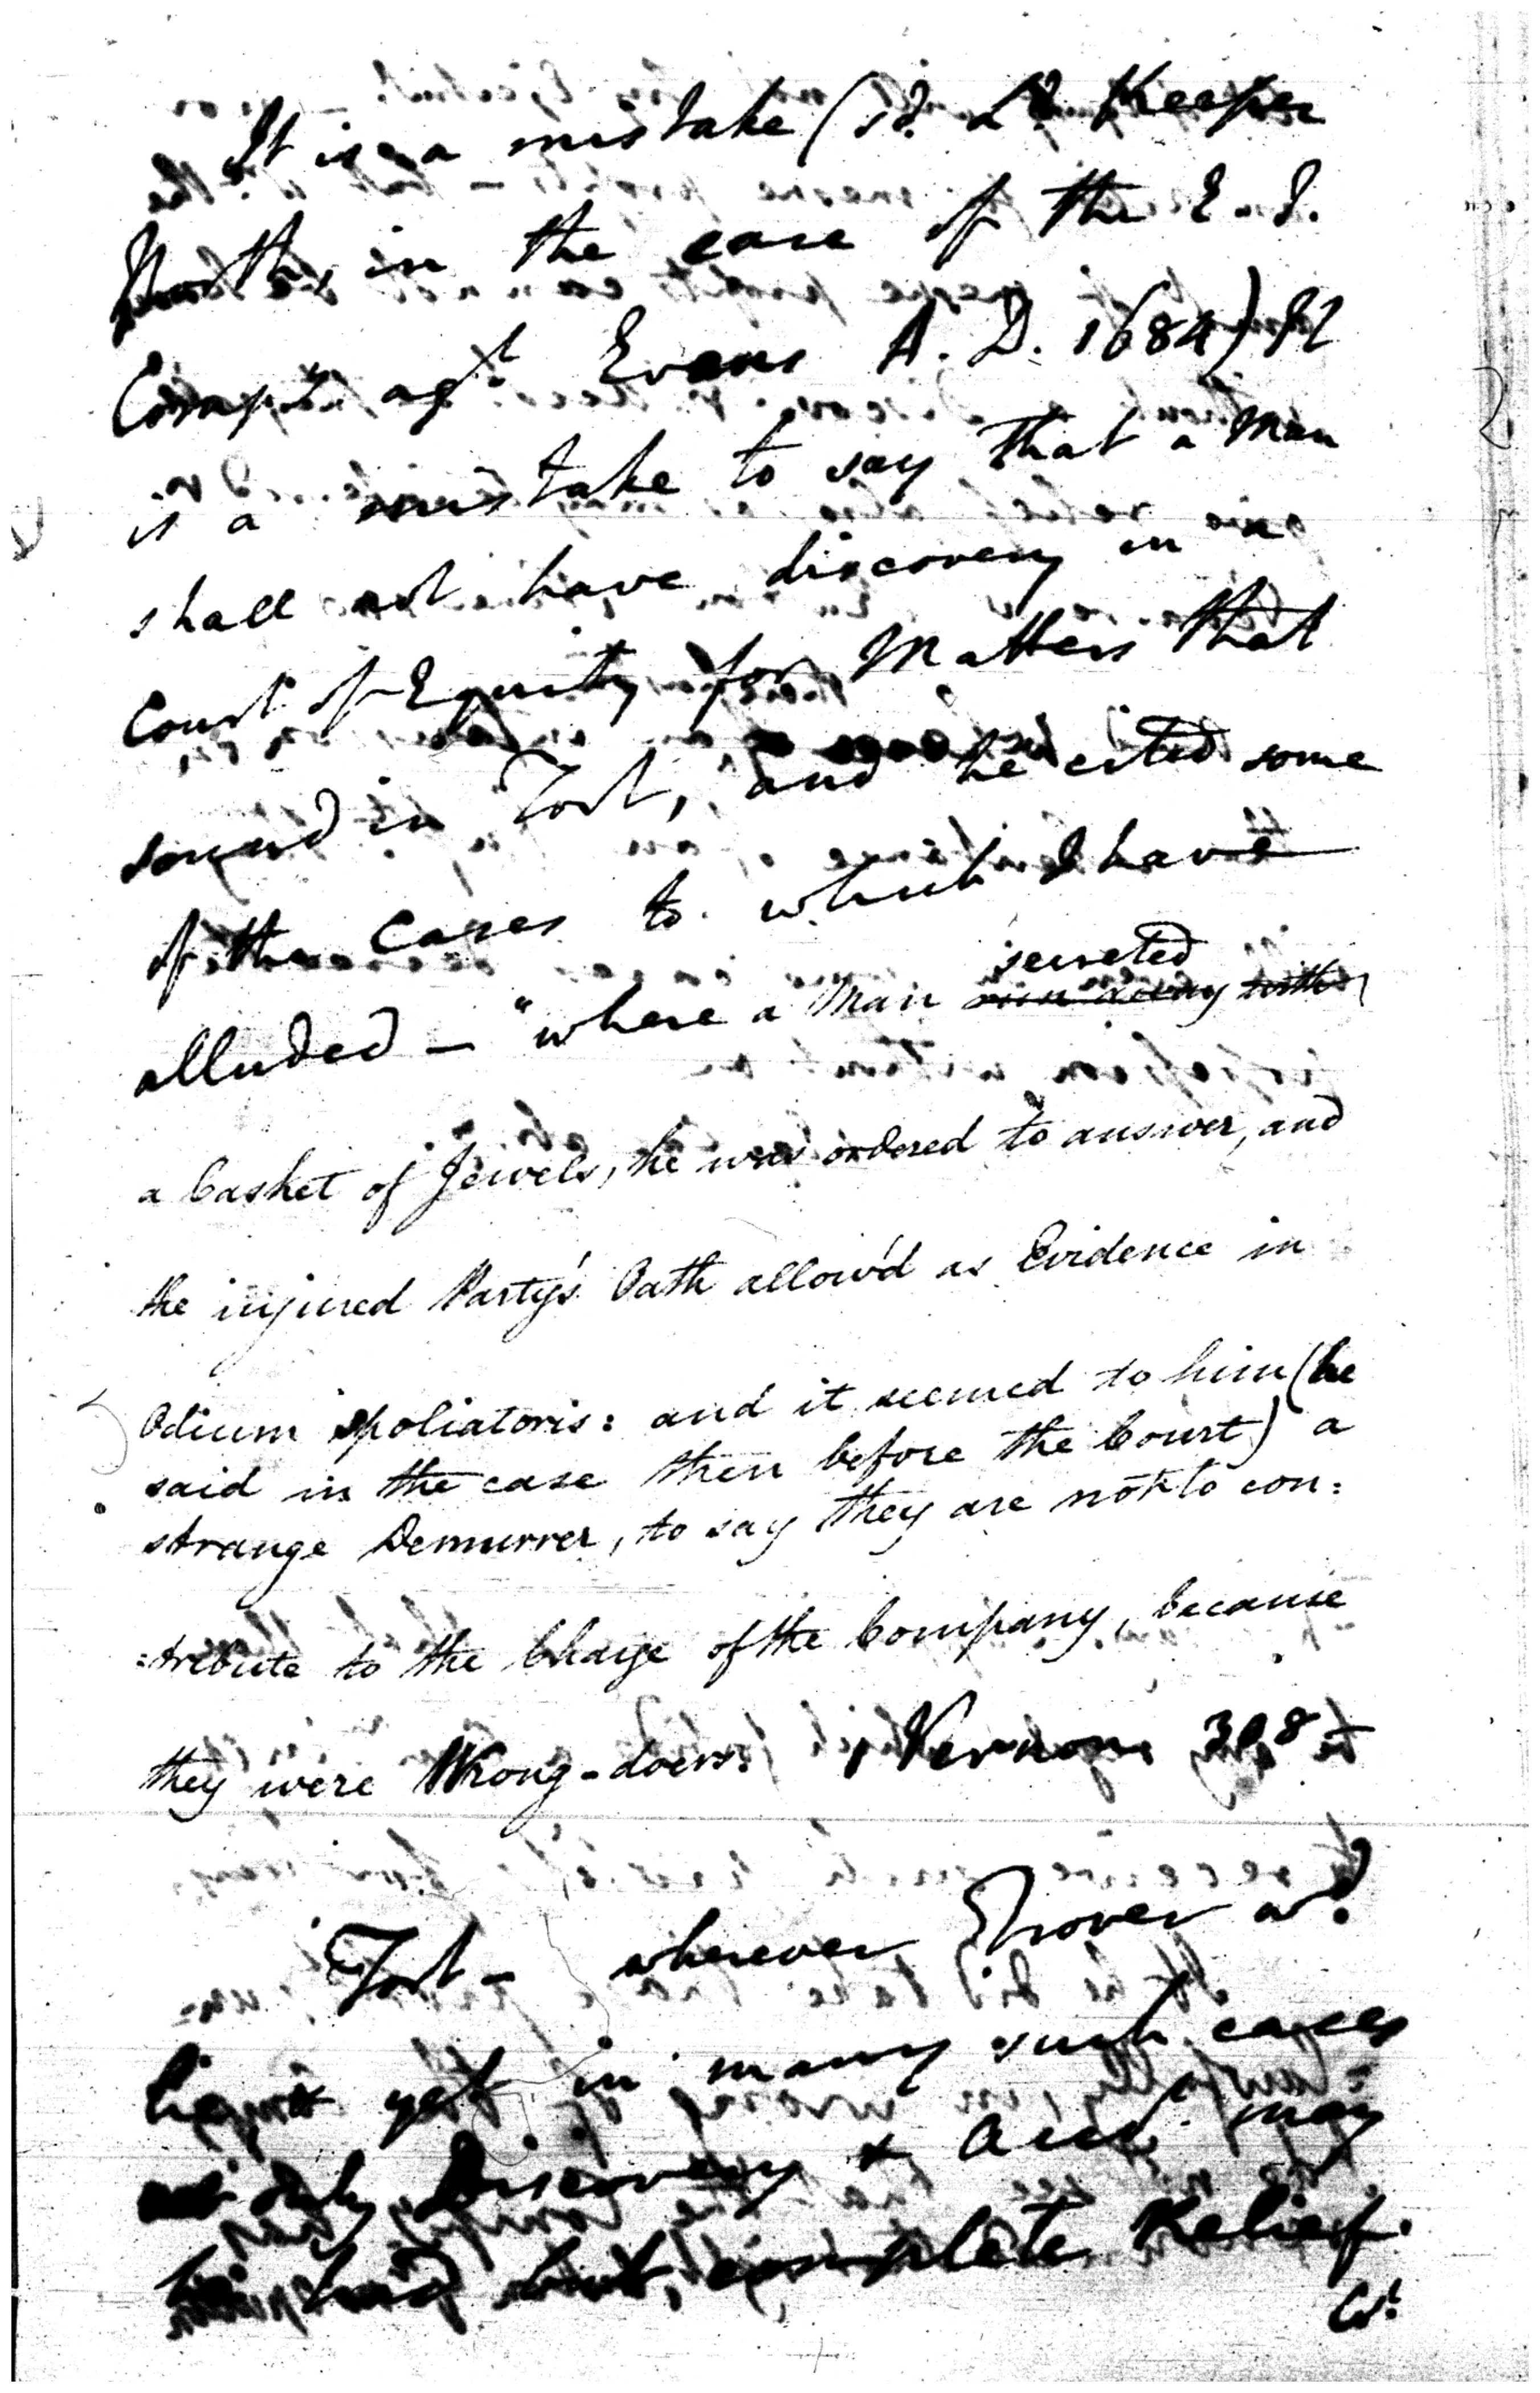 It is a mistake (sd. Ld. Keeper
North, in the case of the E. I.
Compy. agt. Evans A. D. 1684) It
is a mistake to say that a Man
shall not have discovery in a
Court of Equity for Matters that
sound in Tort, and he cited some
of the Cases to which I have
alluded — "where a Man run away with secreted
a Casket of Jewels, he was ordered to answer, and
the injured Party's Oath allow'd as Evidence in
Odium spoliatoris: and it seemed to him (he
said in the case then before the Court) a
strange Demurrer, to say they are not to con:
:tribute to the Charge of the Company, because
they were Wrong-doers. 1 Vernon 308
Tort — wherever Trover wd.
lie, yet in many such cases
not only Discovery & Acct. may
be had but, complete Relief.
Ct.